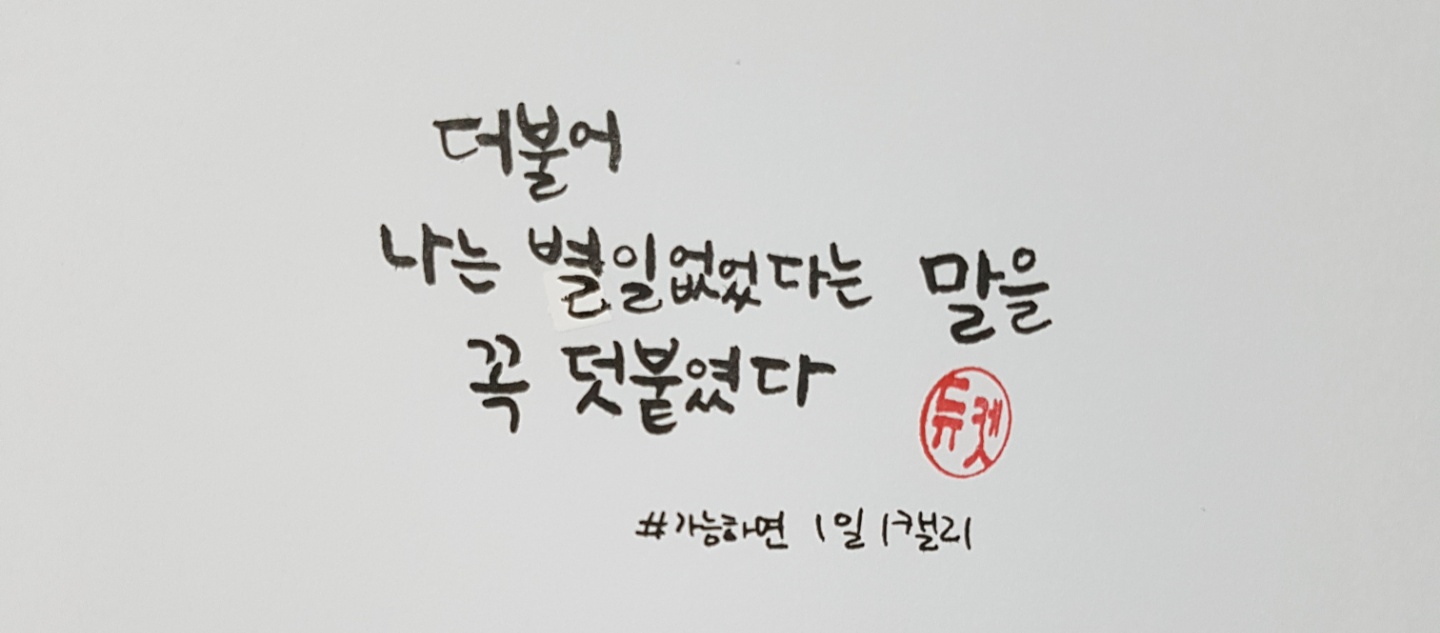 더불어
나는 별일없었다는 말을
꼭 덧붙였다
듀켓
#가능하면 1일 1캘리